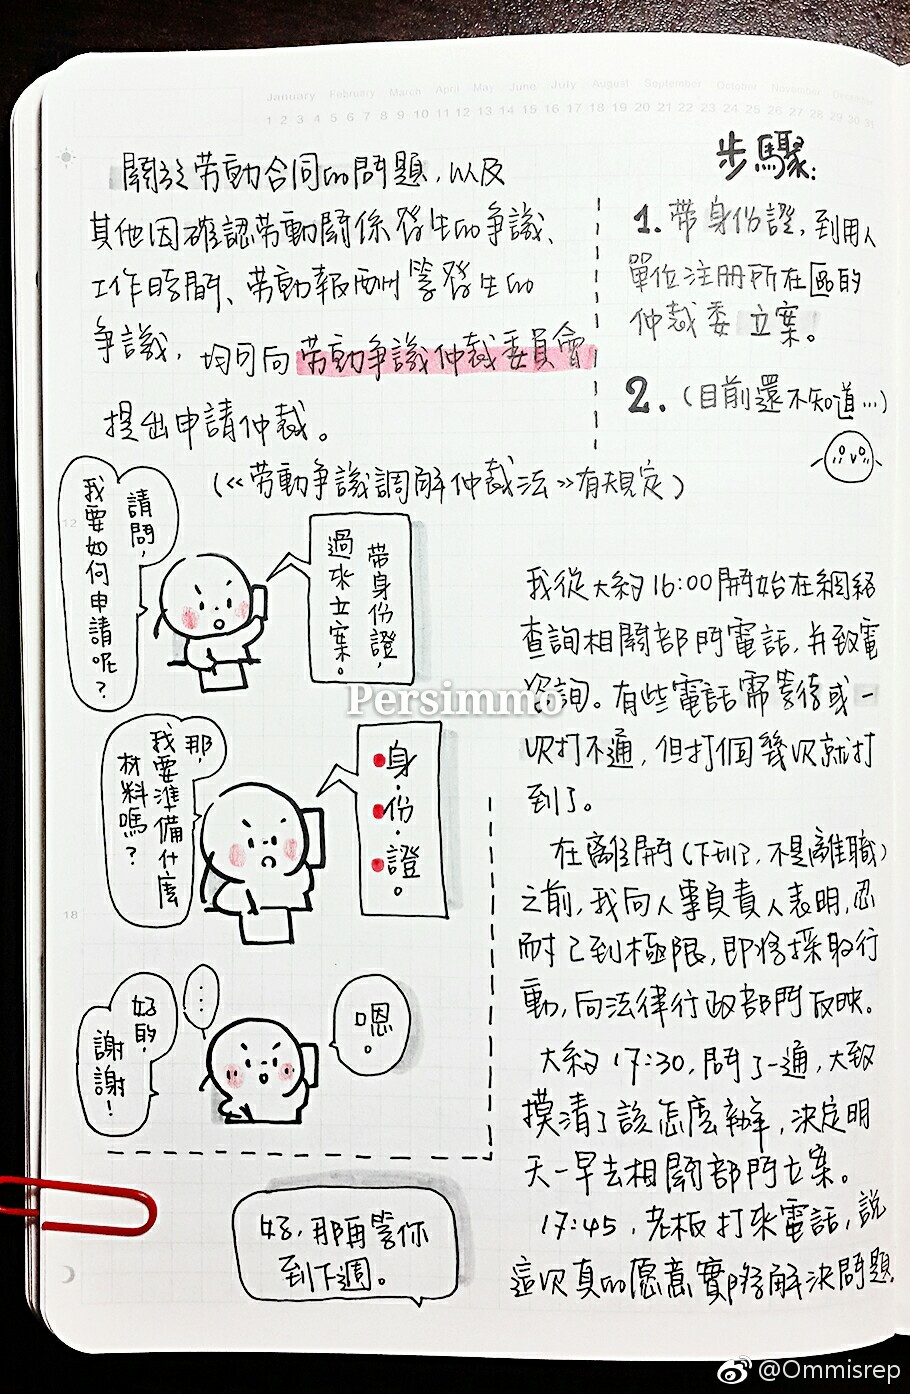 January February March April May June July August September October November December
1 2 3 4 5 6 7 8 9 10 11 12 13 14 15 16 17 18 19 20 21 22 23 24 25 26 27 28 29 30 31
關於劳動合同的問題,以及
其他因確認劳動關係發生的争議、
工作時間、劳動報酬等發生的
争議,均可向劳動争議仲裁委員會
提出申請仲裁。
(《劳動争議調解仲裁法》有規定)
步驟:
1. 带身份證,到用人
單位注册所在區的
仲裁委立案。
2.(目前還不知道…)
12
請問,
我要如何申請呢?
带身份證,
過來立案。
那,
我要準備什麼
材料嗎?
身·份·證。
18
…
好的,
謝謝!
嗯。
好,那再等你
到下週。
我從大約16:00開始在網絡
查詢相關部門電話,并致電
咨詢。有些電話需等待或一
次打不通,但打個幾次就打
到了。
在離開(下班,不是離職)
之前,我向人事負責人表明,忍
耐已到極限,即将採取行
動,向法律行政部門反映。
大約17:30,問了一通,大致
摸清了該怎麼辦,決定明
天一早去相關部門立案。
17:45,老板打來電話,說
這次真的愿意實際解決問題
Persimmo
@Ommisrep